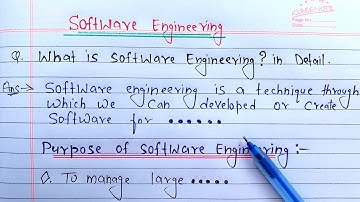 Software Engineering
Q. What is Software Engineering? in Detail.
Ans → Software engineering is a technique through
which we can developed or create
Software for ••••••
Purpose of Software Engineering :-
Q. To manage large •••••